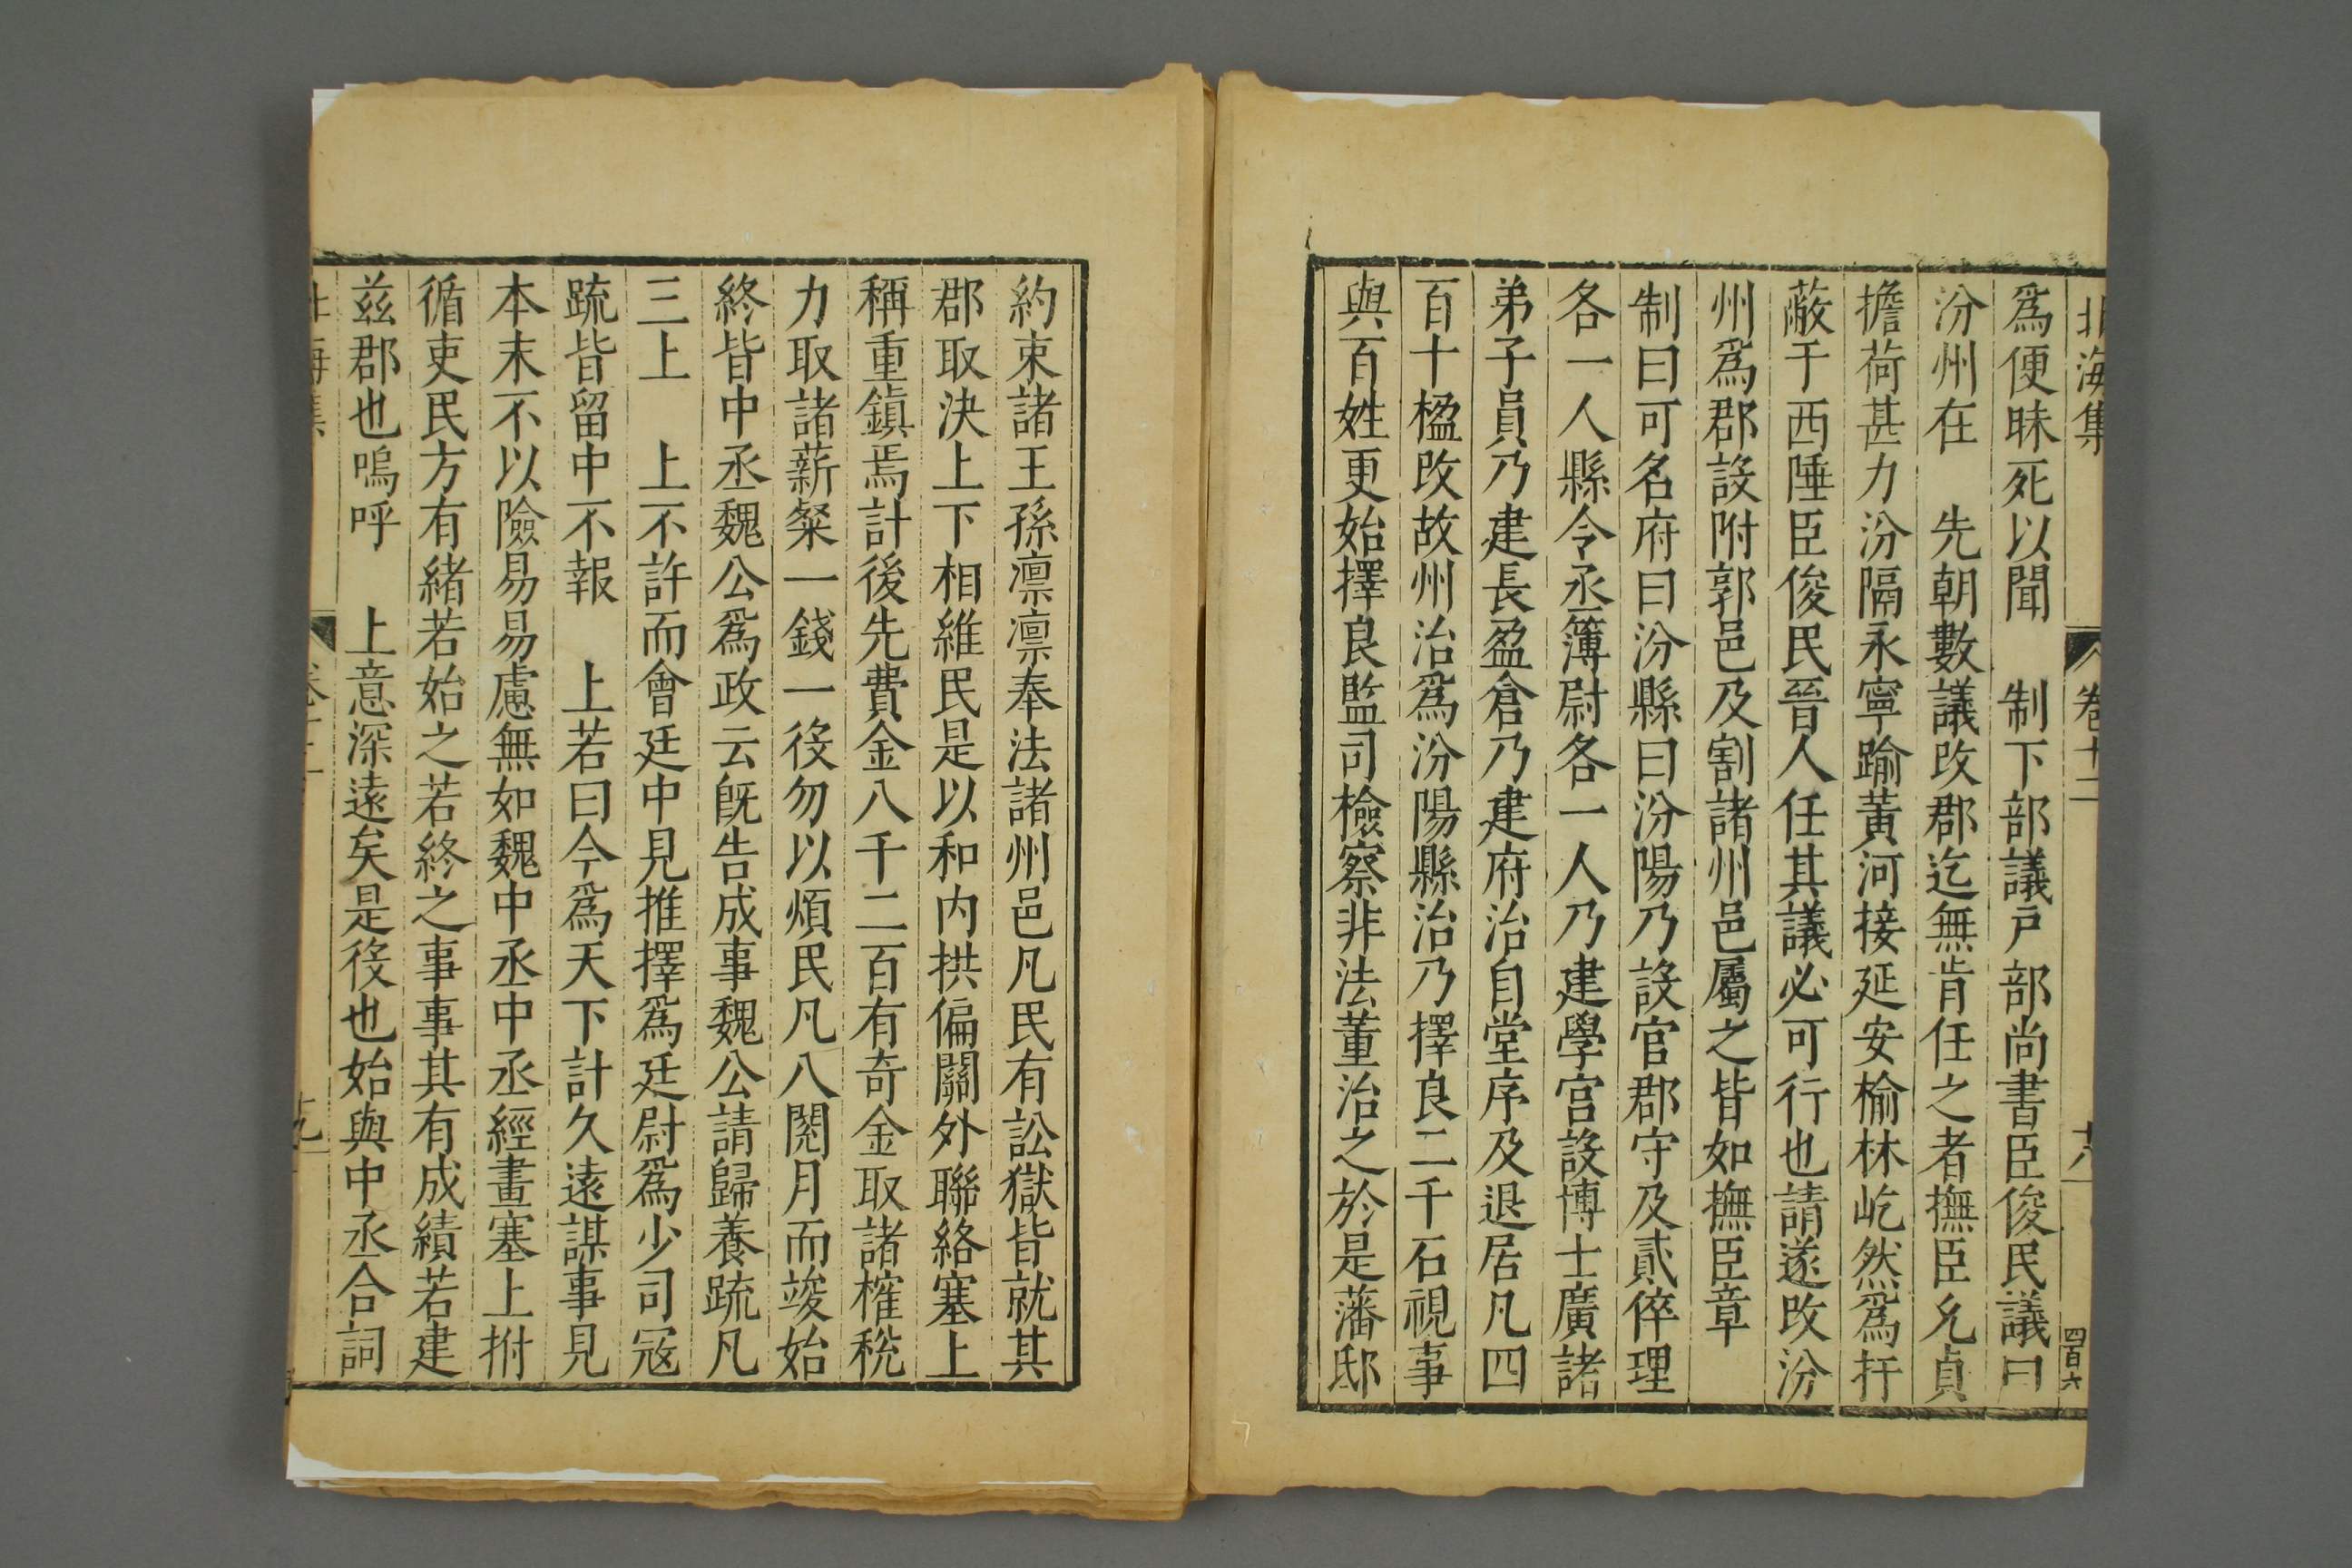 北海集 卷十二 十八 四百六
爲便昧死以聞 制下部議戸部尚書臣俊民議曰
汾州在 先朝數議改郡迄無肯任之者撫臣允貞
擔荷甚力汾隔永寧踰黃河接延安榆林屹然爲扞
蔽于西陲臣俊民晉人任其議必可行也請遂改汾
州爲郡設附郭邑及割諸州邑屬之皆如撫臣章
制曰可名府曰汾縣曰汾陽乃設官郡守及貳倅理
各一人縣令丞簿尉各一人乃建學宮設博士廣諸
弟子員乃建長盈倉乃建府治自堂序及退居凡四
百十楹改故州治爲汾陽縣治乃擇良二千石視事
與百姓更始擇良監司檢察非法董治之於是藩邸
約束諸王孫凛凛奉法諸州邑凡民有訟獄皆就其
郡取決上下相維民是以和内拱偏關外聯絡塞上
稱重鎮焉計後先費金八千二百有奇金取諸榷稅
力取諸薪粲一錢一役勿以煩民凡八閱月而竣始
終皆中丞魏公爲政云旣告成事魏公請歸養疏凡
三上 上不許而會廷中見推擇爲廷尉爲少司寇
疏皆留中不報 上若曰今爲天下計久遠謀事見
本末不以險易易慮無如魏中丞中丞經畫塞上拊
循吏民方有緒若始之若終之事事其有成績若建
茲郡也嗚呼 上意深遠矣是役也始與中丞合詞